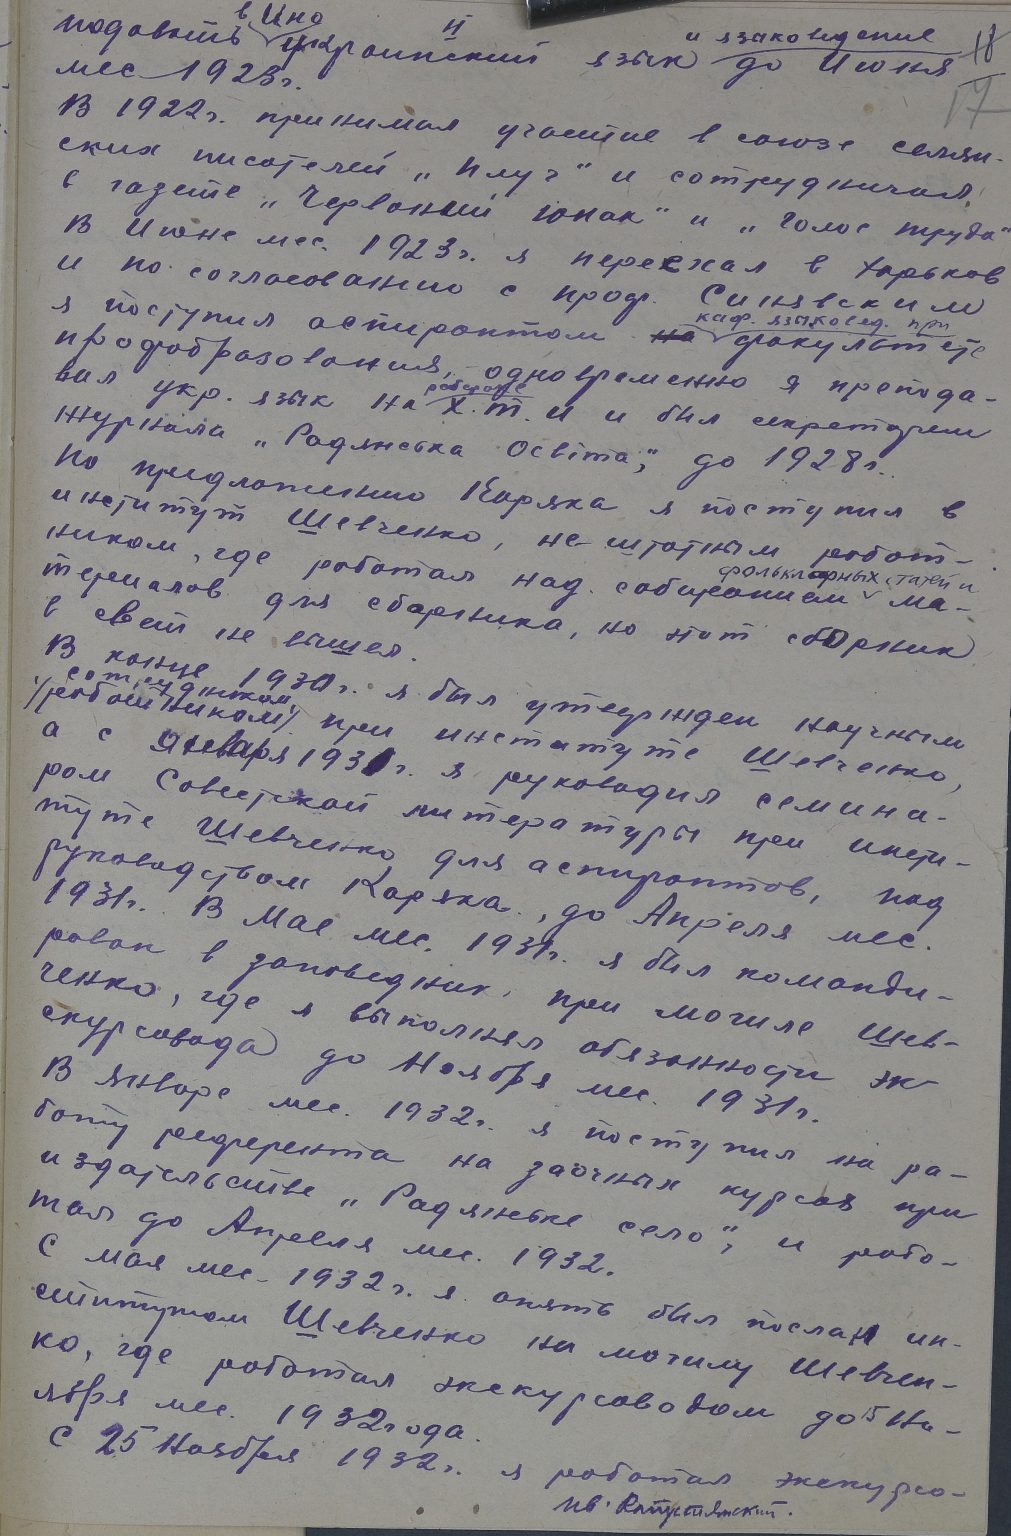 в Ино и языковедение 18
подовать украинский язык до Июня 17
мес 1923г.
В 1922г. принимал участие в союзе селян-
ских писателей „Плуг" и сотрудничал
в газете „Червоный юнак" и „Голос труда"
В Июне мес. 1923г. я переехал в Харьков
и по согласованию с проф. Синявским
каф. языковед. при
я поступил аспирантом на факультете
профобразования, одновременно я препода-
рабфаке
вал укр. язык на Х.т.и и был секретарем
журнала „Радянська Освіта", до 1928г.
По предложению Коряка я поступил в
институт Шевченко, не штатным работ-
ником, где работал над собиранием фольклорных статей и ма-
териалов для сборника, но этот сборник
в свет не вышел.
В конце 1930г. я был утвержден научным
сотрудником,
/работником/ при институте Шевченко,
а с Января 1931г. я руководил семина-
ром Советской литературы при инсти-
туте Шевченко для аспирантов, под
руководством Коряка, до Апреля мес.
1931г. В Мае мес. 1931г. я был команди-
рован в заповедник, при могиле Шев-
ченко, где я выполнял обязанности эк-
скурсовода до Ноября мес. 1931г.
В январе мес. 1932г. я поступил на ра-
боту референта на заочных курсах при
издательстве „Радянське село", и рабо-
тал до Апреля мес. 1932.
С мая мес. 1932г. я опять был послан ин-
ститутом Шевченко на могилу Шевчен-
ко, где работал экскурсоводом до 15 Но-
ября мес. 1932года.
С 25 Ноября 1932г. я работал экскурсо-
Ив. Капустянский.